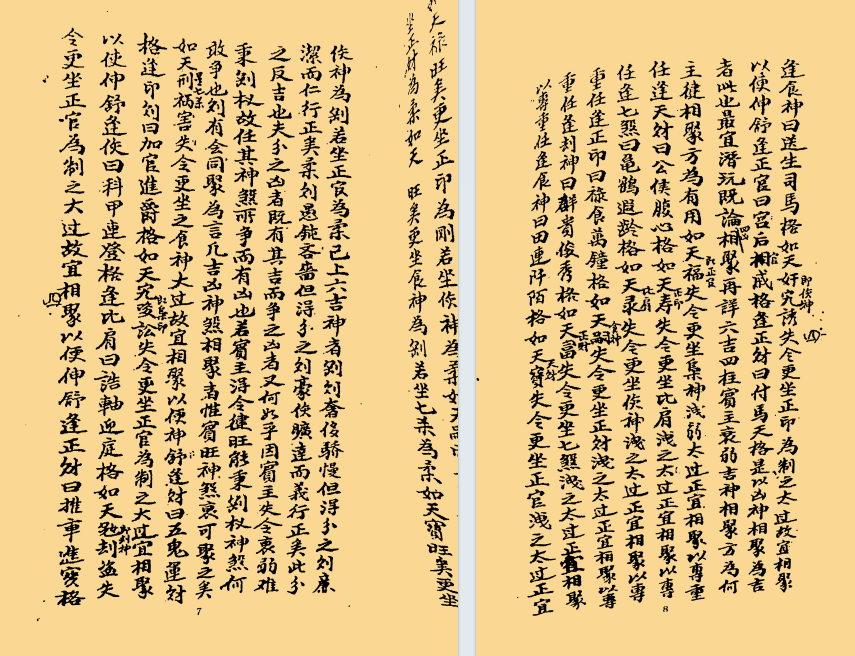 天祿旺矣更坐正印為剛若坐侠神為柔如天
坐正財為柔如天 旺矣更坐食神為剑若坐七柔為柔如天寶旺矣更坐
侠神為剑若坐正官為柔已上六吉神者剑剑奢侈驕慢但得分之剑廉
潔而仁行正矣柔剑愚鈍吝嗇但得分之剑豪侠曠達而義行正矣此分
之反吉也夫分之凶者既有其吉而争之凶者又何如乎因賓主失令衰弱难
秉剑权故任其神煞所争而有凶也若賓主得令健旺能秉剑权神煞何
敢争也剑有会同聚為言几吉凶神煞相聚者惟賓旺神煞衰可聚之美
如天刑祸害失令更坐之食神大过故宜相聚以便神舒逢財曰五鬼運財
格逢印剑曰加官進爵格如天宄訟失令更坐正官為制之大过宜相聚
以使伸舒逢侠曰科甲連登格逢比肩曰誥軸迎庭格如天劫盗失
令更坐正官為制之大过故宜相聚以便伸舒逢正財曰推車進寶格
7
逢食神曰送生司馬格如天奸宄誘失令更坐正印為制之太过故宜相聚
以使伸舒逢正官曰宫后相戚格逢正財曰付馬天格是以凶神相聚為吉
者此也最宜潛玩既論相聚再詳六吉四柱賓主衰弱吉神相聚方為何
主健相聚方為有用如天福失令更坐集神洩弱太过正宜相聚以專重
任逢天財曰公侯腹心格如天寿失令更坐比肩洩之太过正宜相聚以專
任逢七煞曰亀鶴遐龄格如天录失令更坐侠神洩之太过正宜相聚以專
重任逢正印曰祿食萬鐘格如天嗣失令更坐正財洩之太过正宜相聚以專
重任逢刦神曰群賁俊秀格如天富失令更坐七煞洩之太过正宜相聚
以專重任逢食神曰田連阡陌格如天寶失令更坐正官洩之太过正宜
8